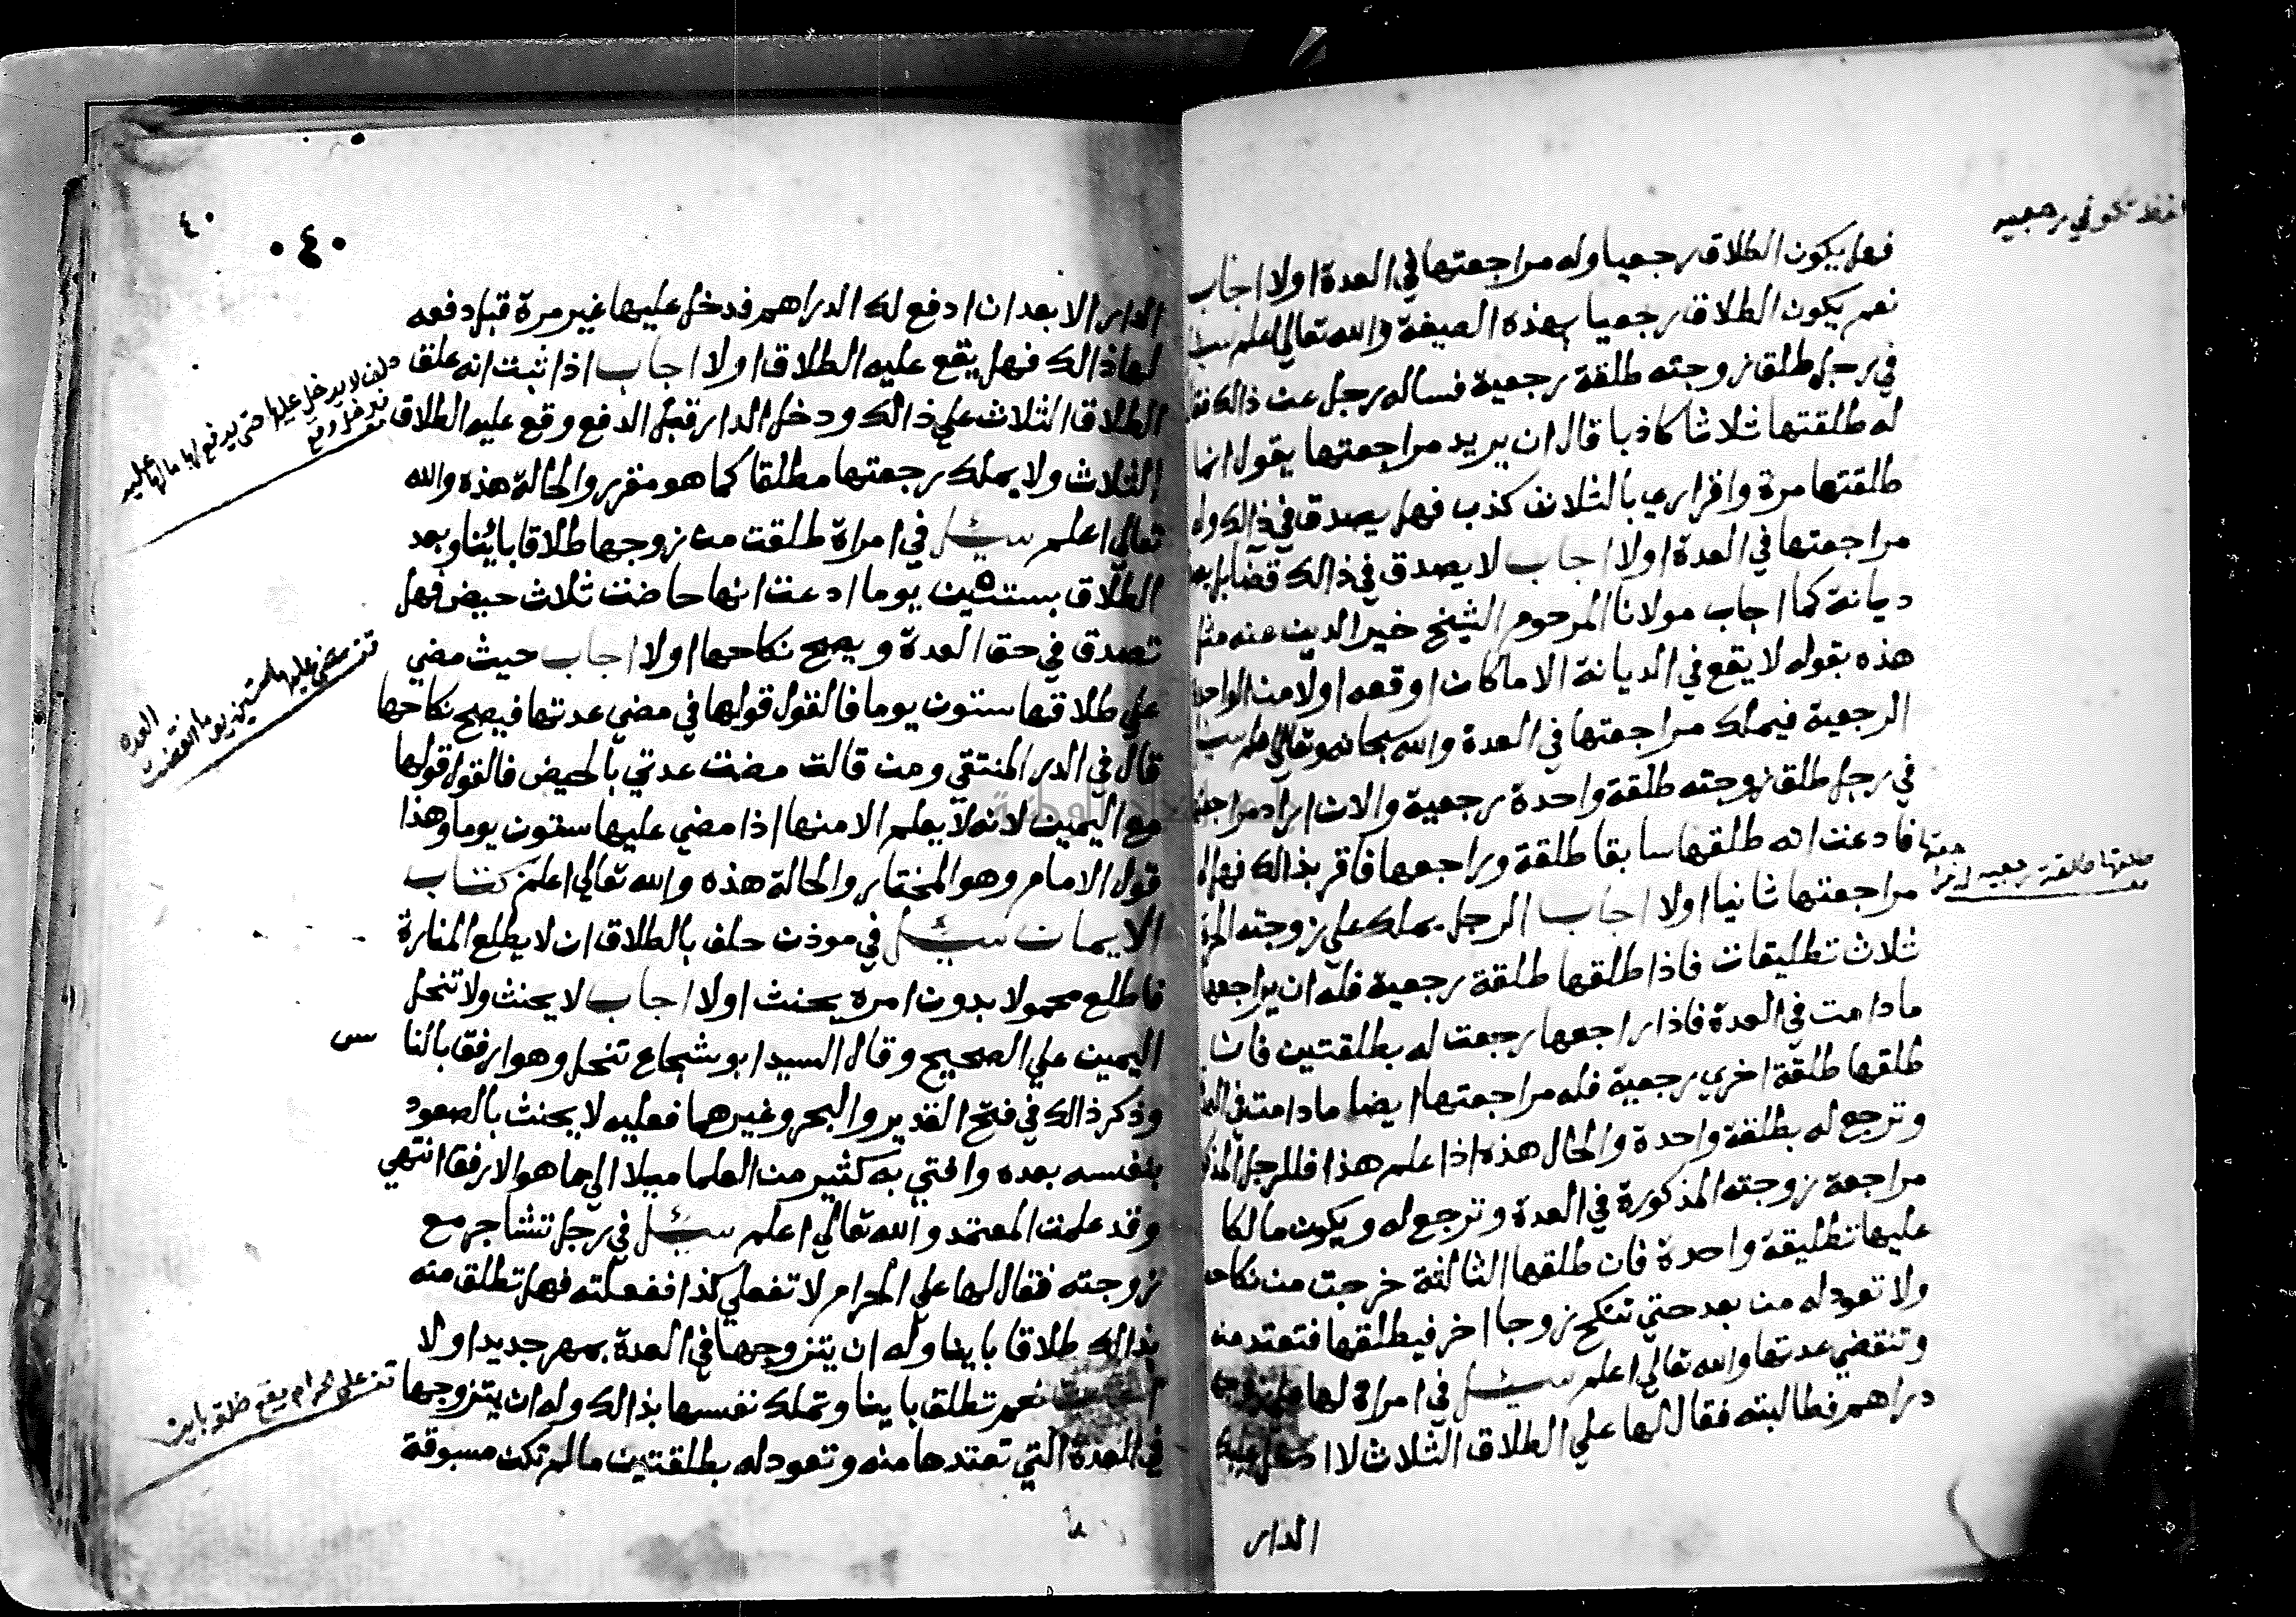 فهل يكون الطلاق رجعيا وله مراجعتها في العدة اولا اجاب
نعم يكون الطلاق رجعيا بهذه الصيغة والله تعالي اعلم سئل
في رجل طلق زوجته طلقة رجعية فساله رجل عن ذالك فقال
له طلقتها ثلاثا كاذبا قال ان يريد مراجعتها يقول انما
طلقتها مرة واقراري بالثلاث كذب فهل يصدق في ذالك وله
مراجعتها في العدة اولا اجاب لا يصدق في ذالك قضا بل
ديانة كما اجاب مولانا المرحوم الشيخ خير الدين عنه مثل
هذه بقوله لا يقع في الديانة الا ما كان اوقعه اولا من الواحدة
الرجعية فيملك مراجعتها في العدة والله سبحانه وتعالي اعلم سئل
في رجل طلق زوجته طلقة واحدة رجعية والان اراد مراجعتها
فادعت انه طلقها سابقا طلقة وراجعها فاقر بذالك فهل له
مراجعتها ثانيا اولا اجاب الرجل يملك علي زوجته الحرة
ثلاث تطليقات فاذا طلقها طلقة رجعية فله ان يراجعها
ما دامت في العدة فاذا راجعها رجعت له بطلقتين فان
طلقها طلقة اخري رجعية فله مراجعتها ايضا ما دامت في العدة
وترجع له بطلقة واحدة والحال هذه اذا علم هذا فللرجل المذكور
مراجعة زوجته المذكورة في العدة وترجع له ويكون مالكا
عليها تطليقة واحدة فان طلقها الثالثة خرجت من نكاحه
ولا تعود له من بعد حتي تنكح زوجا اخر فيطلقها فتعتد منه
وتنقضي عدتها والله تعالي اعلم سئل في امراة لها علي زوجها
دراهم فطالبته فقال لها علي الطلاق الثلاث لا ادخل عليك
الدار
تكوني رجعيه
طلقها طلقة رجعيه
٤٠
٤٠
الدار الا بعد ان ادفع لك الدراهم فدخل عليها غير مرة قبل دفعه
لها ذالك فهل يقع عليه الطلاق اولا اجاب اذا ثبت انه علق
الطلاق الثلاث علي ذالك ودخل الدار قبل الدفع وقع عليه الطلاق
الثلاث ولا يملك رجعتها مطلقا كما هو مقرر والحالة هذه والله
تعالي اعلم سئل في امراة طلقت من زوجها طلاقا بائنا وبعد
الطلاق بستين يوما ادعت انها حاضت ثلاث حيض فهل
تصدق في حق العدة ويصح نكاحها اولا اجاب حيث مضي
علي طلاقها ستون يوما فالقول قولها في مضي عدتها فيصح نكاحها
قال في الدر المنتقي ومن قالت مضت عدتي بالحيض فالقول قولها
مع اليمين لانه لا يعلم الا منها اذا مضي عليها ستون يوما وهذا
قول الامام وهو المختار والحالة هذه والله تعالي اعلم كتاب
الايمان سئل في موذن حلف بالطلاق ان لا يطلع المنارة
فاطلع محمولا بدون امره يحنث اولا اجاب لا يحنث ولا تنحل
اليمين علي الصحيح وقال السيد ابو شجاع تنحل وهو ارفق بالنا س
وذكر ذالك في فتح القدير والبحر وغيرهما فعليه لا يحنث بالصعود
بنفسه بعده وافتي به كثير من العلما ميلا الي ما هو الارفق انتهي
وقد علمت المعتمد والله تعالي اعلم سئل في رجل تشاجر مع
زوجته فقال لها علي الحرام لا تفعلي كذا ففعلته فهل تطلق منه
بذالك طلاقا باينا وله ان يتزوجها في العدة بمهر جديد اولا
اجاب نعم تطلق باينا وتملك نفسها بذالك وله ان يتزوجها
في العدة التي تعتدها منه وتعود له بطلقتين ما لم تكن مسبوقة
حلف لا يدخل عليها حتى يدفع لها مالها عليه
فدخل وقع
مضي عليها ستين يوما انقضت
العده
علي الحرام يقع طلاق باين